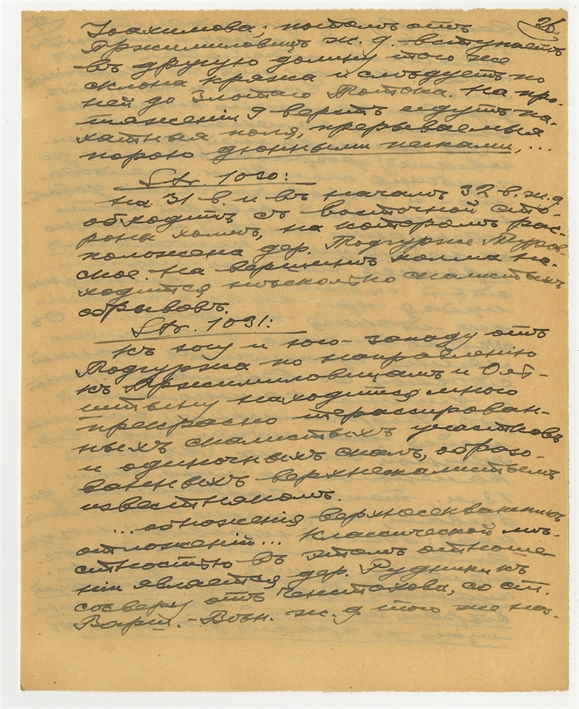 26.
Іоахимова; потомъ отъ
Пржимиловицъ ж. д. вступаетъ
въ другую долину того же
склона кряжа и слѣдуетъ по
ней до Злотаго Потока. На про-
тяженіи 9 верстъ идутъ па-
хатныя поля, прерываемыя
порою дюнными песками, ...
Str. 1030:
На 31 в. и въ началѣ 32 в. ж. д
обходитъ съ восточной сто-
роны холмъ, на которомъ рас-
положена дер. Подгурже
ское. На вершинѣ холма на-
ходится нѣсколько скалистыхъ
обрывовъ.
Str. 1031:
Къ югу и юго-западу отъ
Подгуржа по направленію
къ Пржимиловицамъ и Ольш-
тыну находится много
прекрасно террасирован-
ныхъ скалистыхъ участковъ
и одиночныхъ скалъ, образо-
ванныхъ верхнескалистымъ
известнякомъ.
... обнаженія верхнесекванскихъ
отложеній... Классической мѣ-
стностью въ этомъ отноше
ніи является дер. Рудники къ
сѣверу отъ Ченстохова, со ст.
Варш.-Вѣн. ж. д того же на-